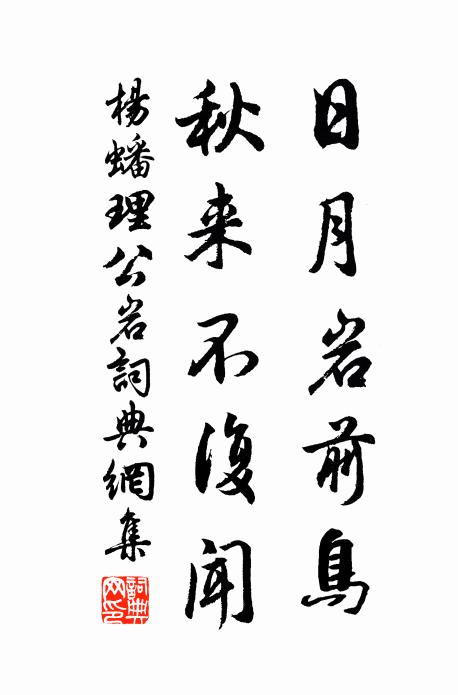 日月岩前鳥
秋来不復聞
楊蟠理公岩詞典網集
詞典网印